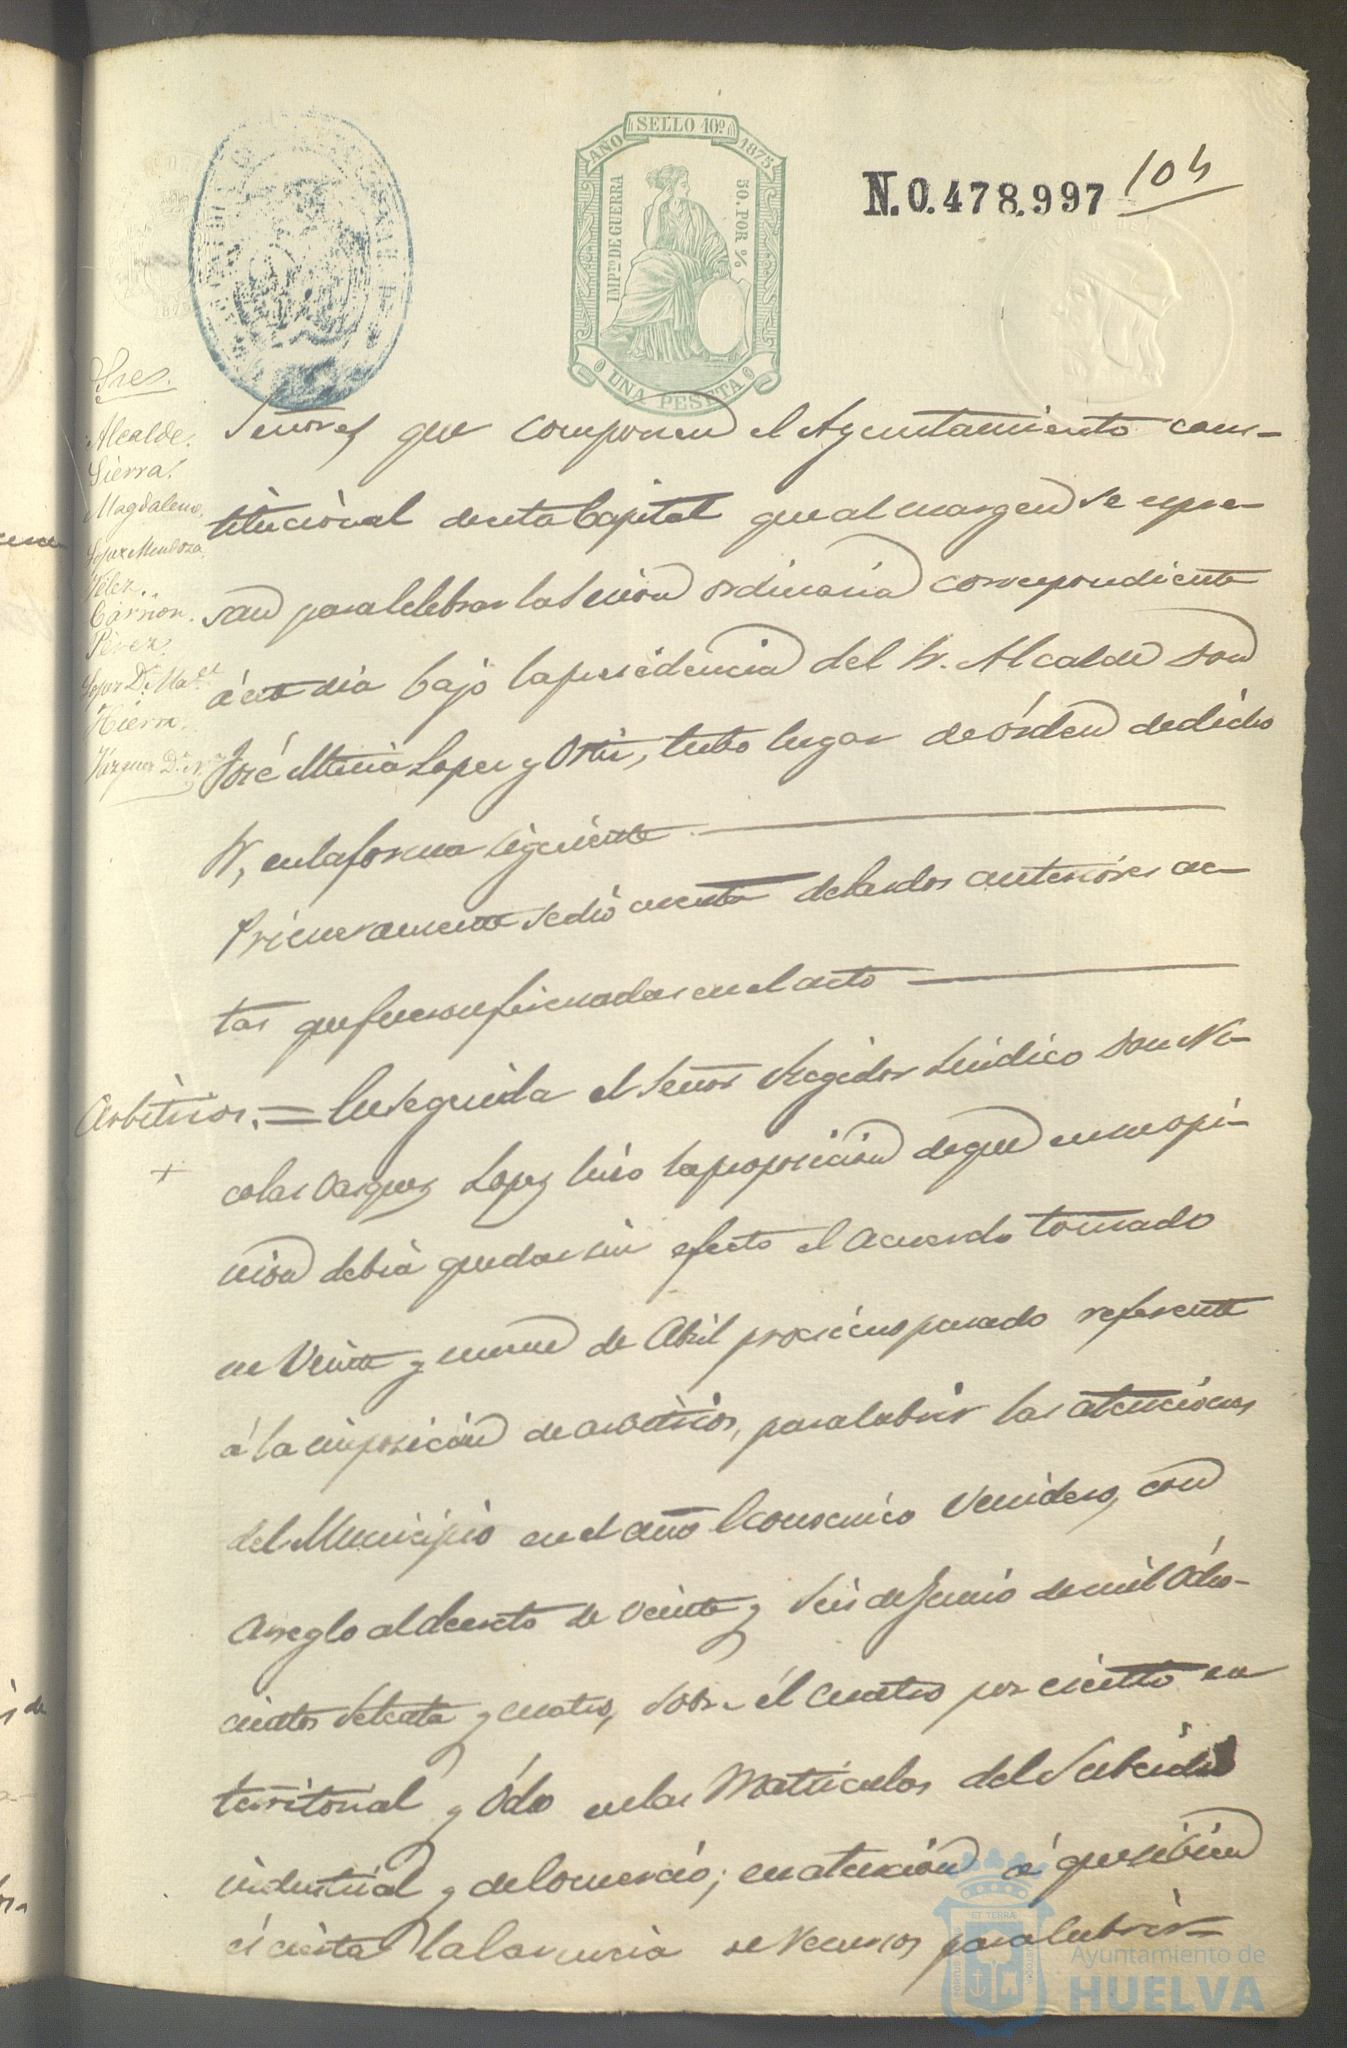 SELLO 10º
AÑO
1875
IMPTO DE GUERRA
50. POR %
UNA PESETA
N.0.478.997
104
Sres.
Alcalde.
Sierra.
Magdaleno.
Lopez Mendoza.
Velez.
Carrion.
Perez.
Lopez Dn. Ma
Hierro.
Vazquez Dn. N
Señores que componen el Ayuntamiento cons-
titucional de esta Capital que al margen se expre-
san para celebrar la Sesion ordinaria correspondiente
á este dia bajo la presidencia del Sr. Alcalde Don
José Maria Lopez y Ortiz, tubo lugar de órden de dicho
Sr, en la forma siguiente
Primeramente se dió cuenta de las dos anteriores ac-
tas que fueron firmadas en el acto
Arbitrios. = En seguida el Señor Regidor Sindico Don Ni-
colas Vazquez Lopez hizo la proposicion de que en su opi-
nion debia quedar sin efecto el acuerdo tomado
en Veinte y nueve de Abril procsimo pasado referente
á la imposicion de arbitrios, para cubrir las atenciones
del Municipio en el año Economico Venidero, con
arreglo al decreto de veinte y Seis de Junio de mil Ocho-
cientos Setenta y cuatro, sobre él cuatro por ciento en
territorial y Ócho en las Matriculas del Subcidio
industrial y de Comercio; en atencion á que si bien
és cierta la carencia de recursos para cubrir
ET TERRÆ
Ayuntamiento de
HUELVA